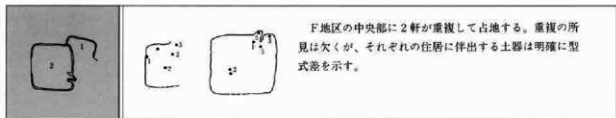 F地区の中央部に2軒が重複して占地する。重複の所
見は欠くが、それぞれの住居に伴出する土器は明確に型
式差を示す。
1
2